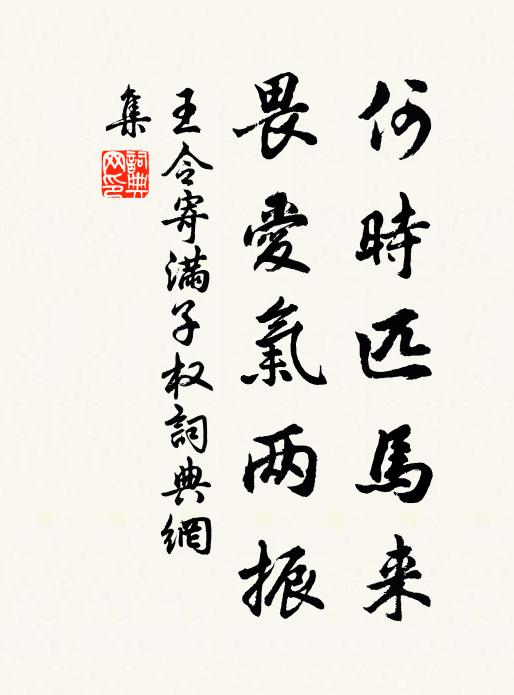 何時匹馬来
畏愛氣两振
王令寄滿子权詞典網
集
詞典
网印